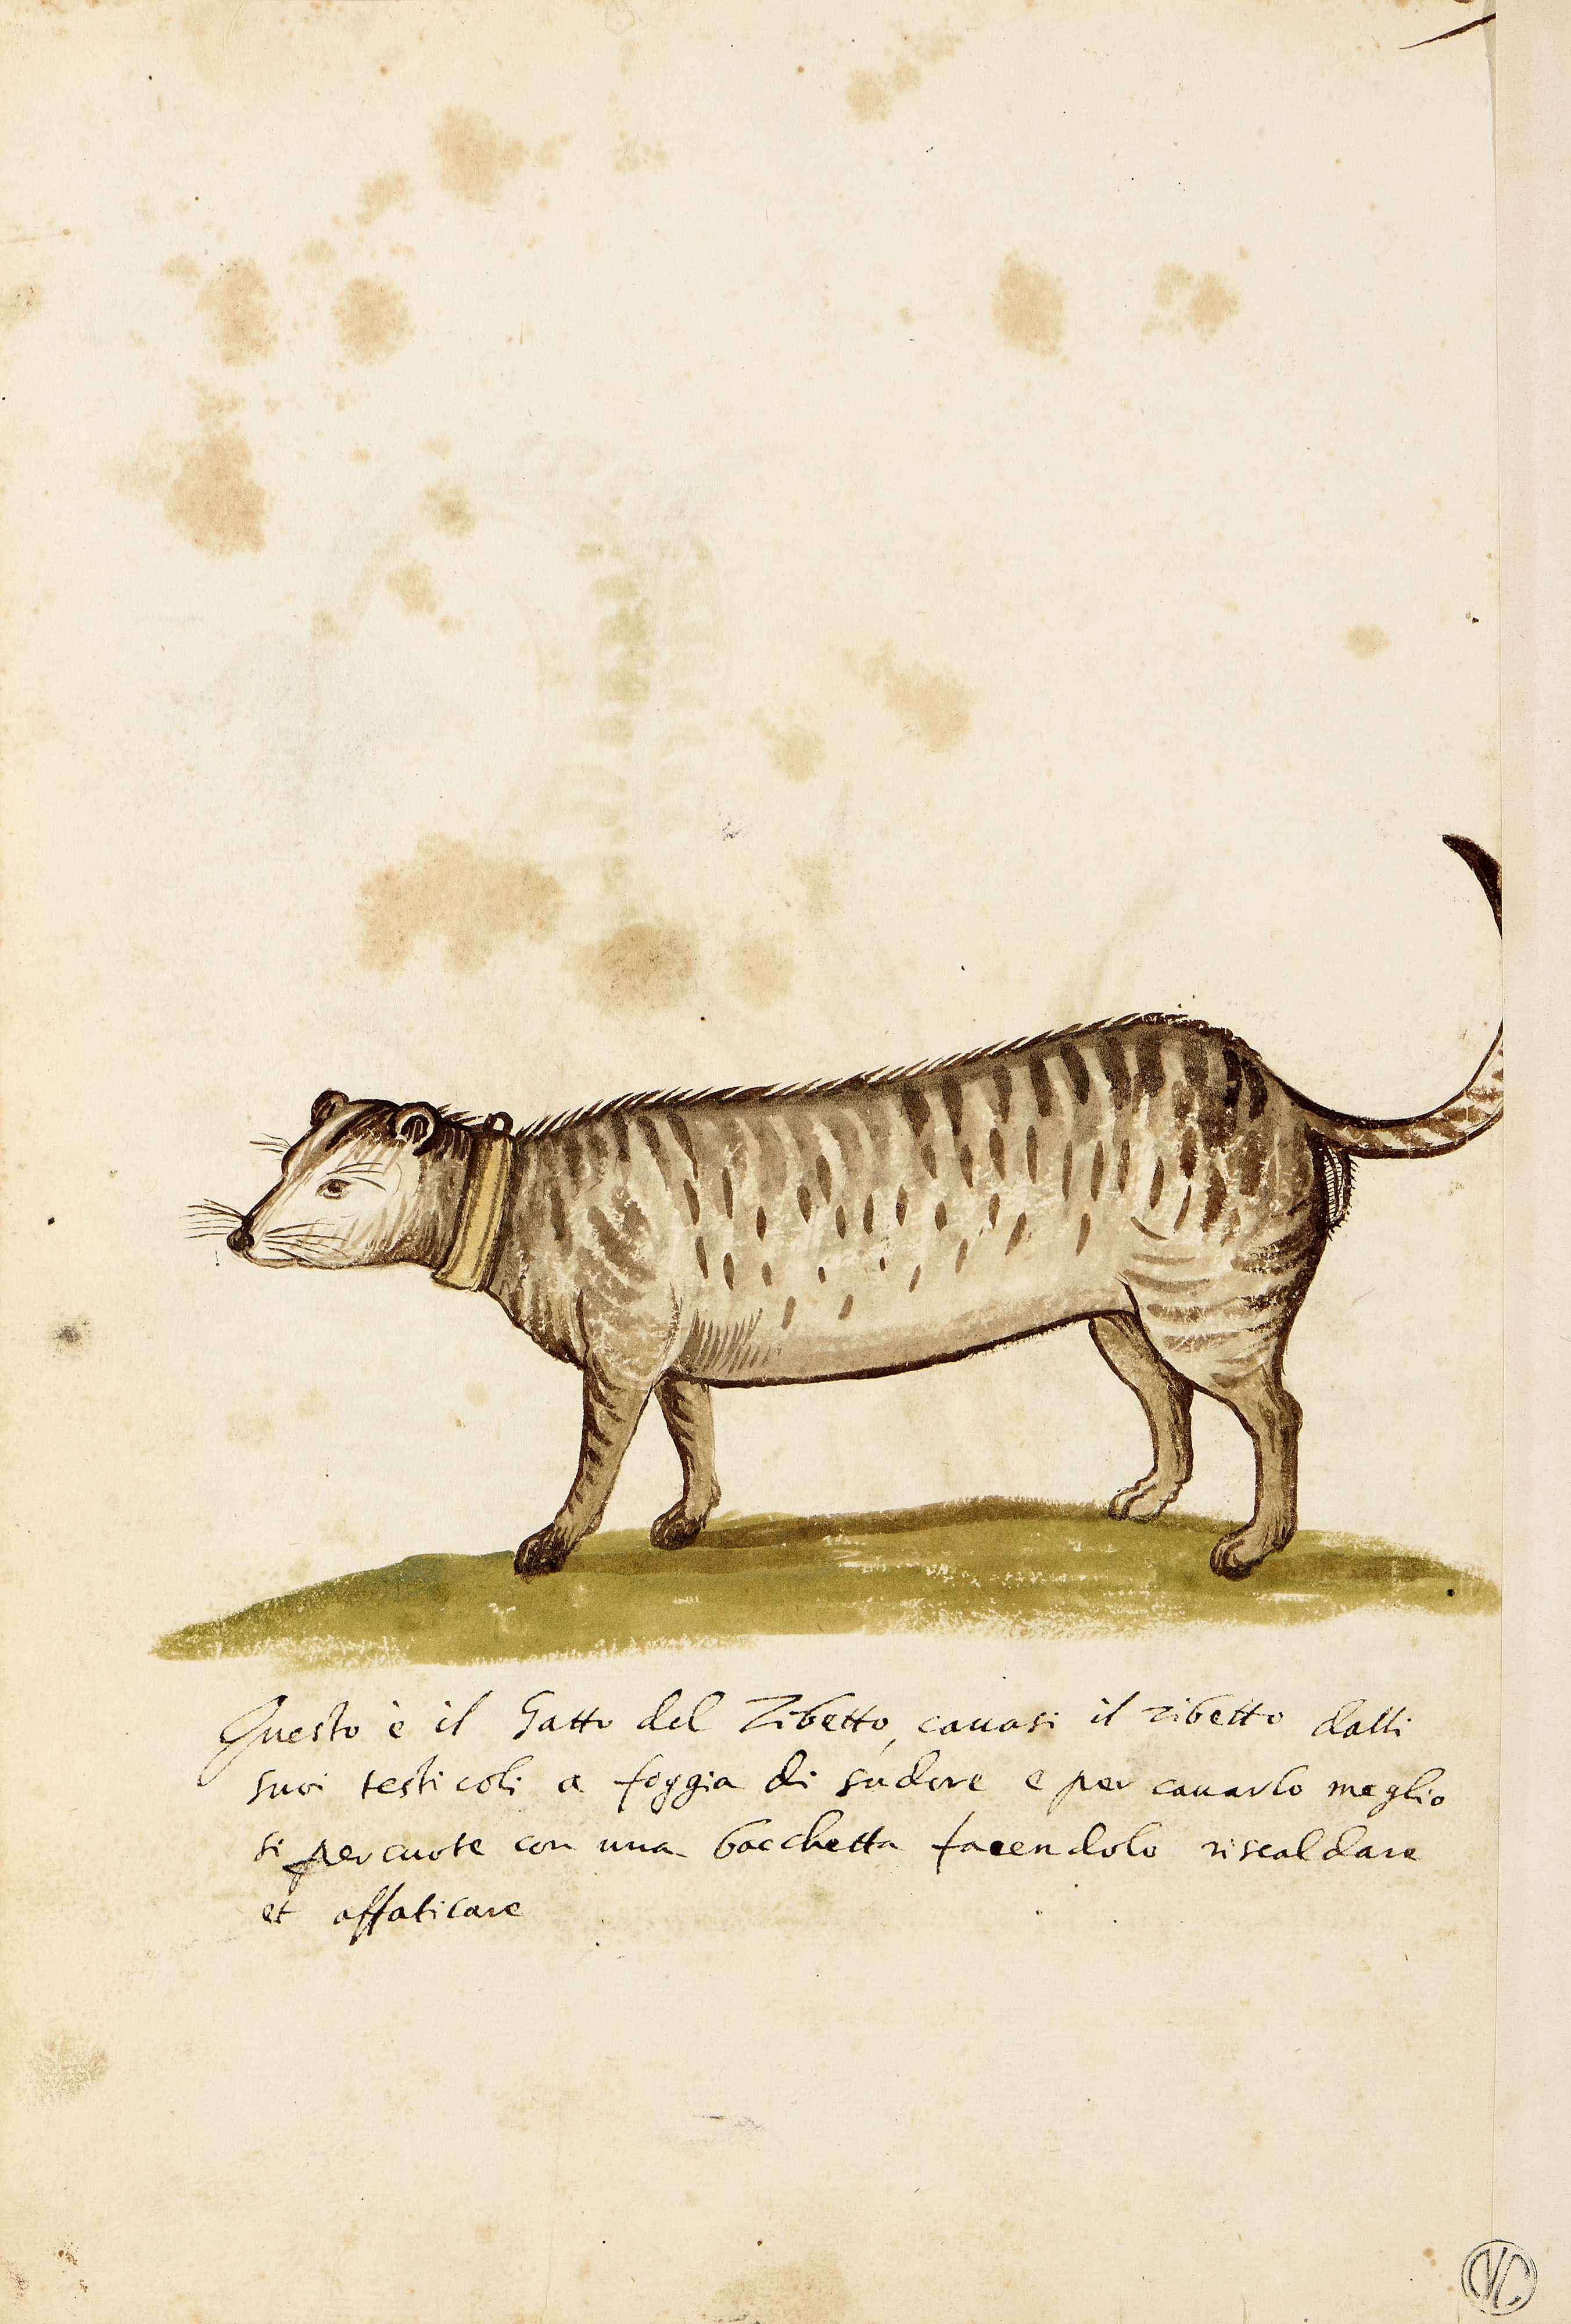 Questo è il Gatto del Zibetto, cauasi il zibetto dalli
suoi testicoli a foggia di sudore e per cauarlo meglio
si percuote con una bacchetta facendolo riscaldare
et affaticare